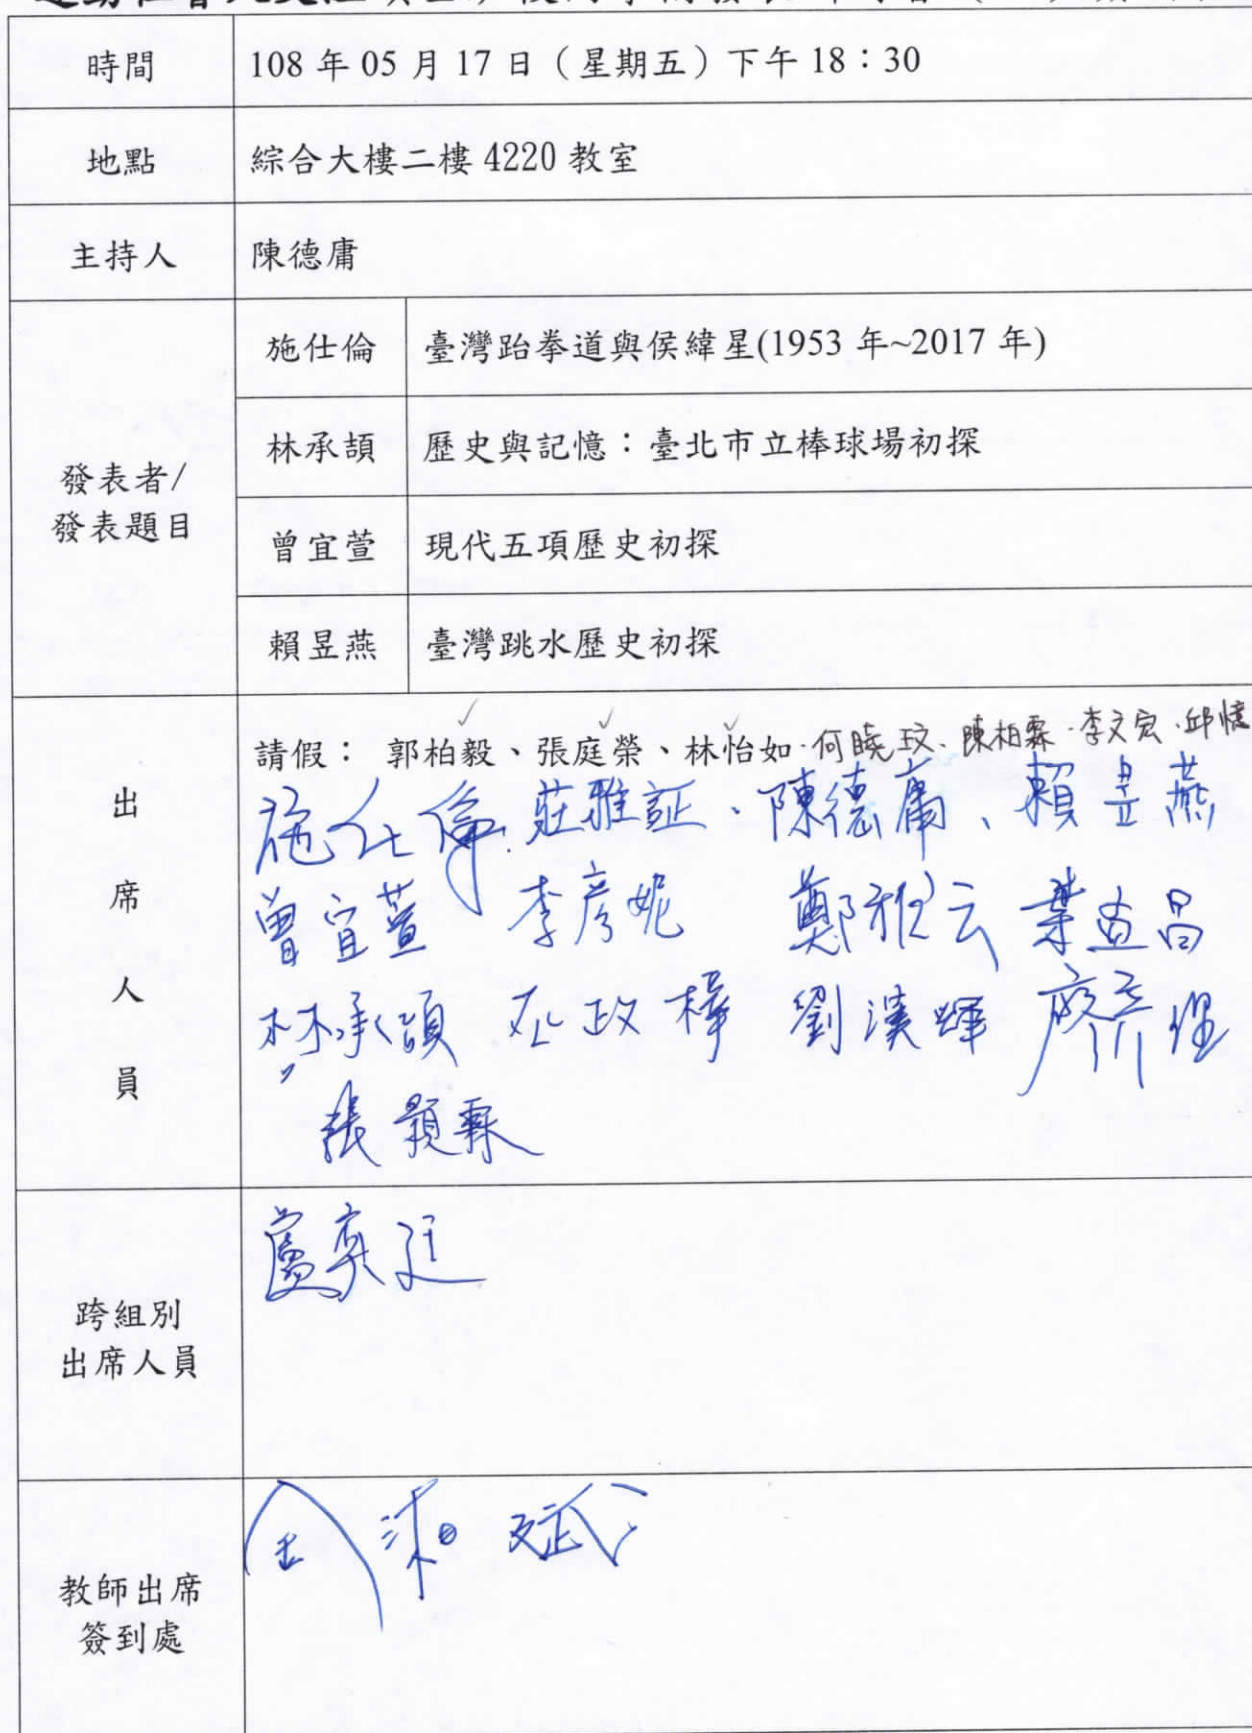 時間 108 年 05 月 17 日（星期五）下午 18：30
地點 綜合大樓二樓 4220 教室
主持人 陳德庸
發表者/
發表題目
施仕倫 臺灣跆拳道與侯緯星(1953 年~2017 年)
林承頡 歷史與記憶：臺北市立棒球場初探
曾宜萱 現代五項歷史初探
賴昱燕 臺灣跳水歷史初探
出席人員
請假： 郭柏毅、張庭榮、林怡如、何曉玟、陳柏霖、李文宏、邱憶
施仕倫、莊雅証、陳德庸、賴昱燕
曾宜萱 李彥妮 鄭雅云 葉直昌
林承頡 政樺 劉漢輝 廖
張顥霖
跨組別
出席人員
盧奕廷
教師出席
簽到處
金湘斌